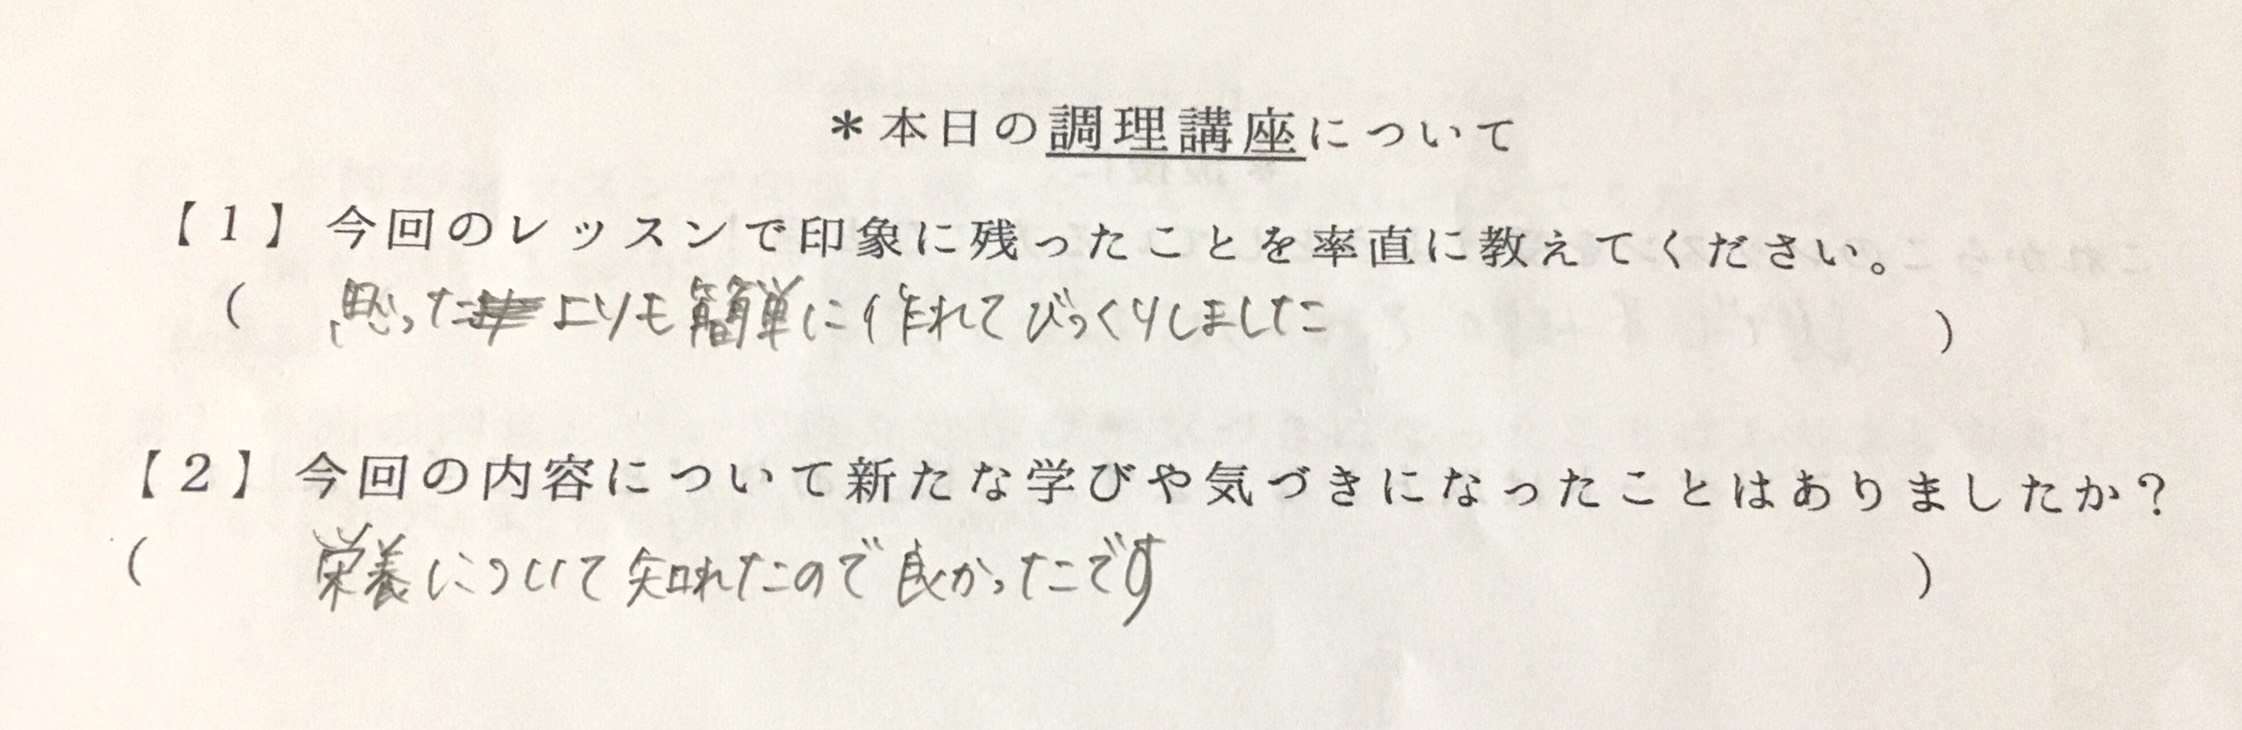 ＊本日の調理講座について
【1】今回のレッスンで印象に残ったことを率直に教えてください。
（思ったよりも簡単に作れてびっくりしました）
【2】今回の内容について新たな学びや気づきになったことはありましたか？
（栄養について知れたので良かったです）